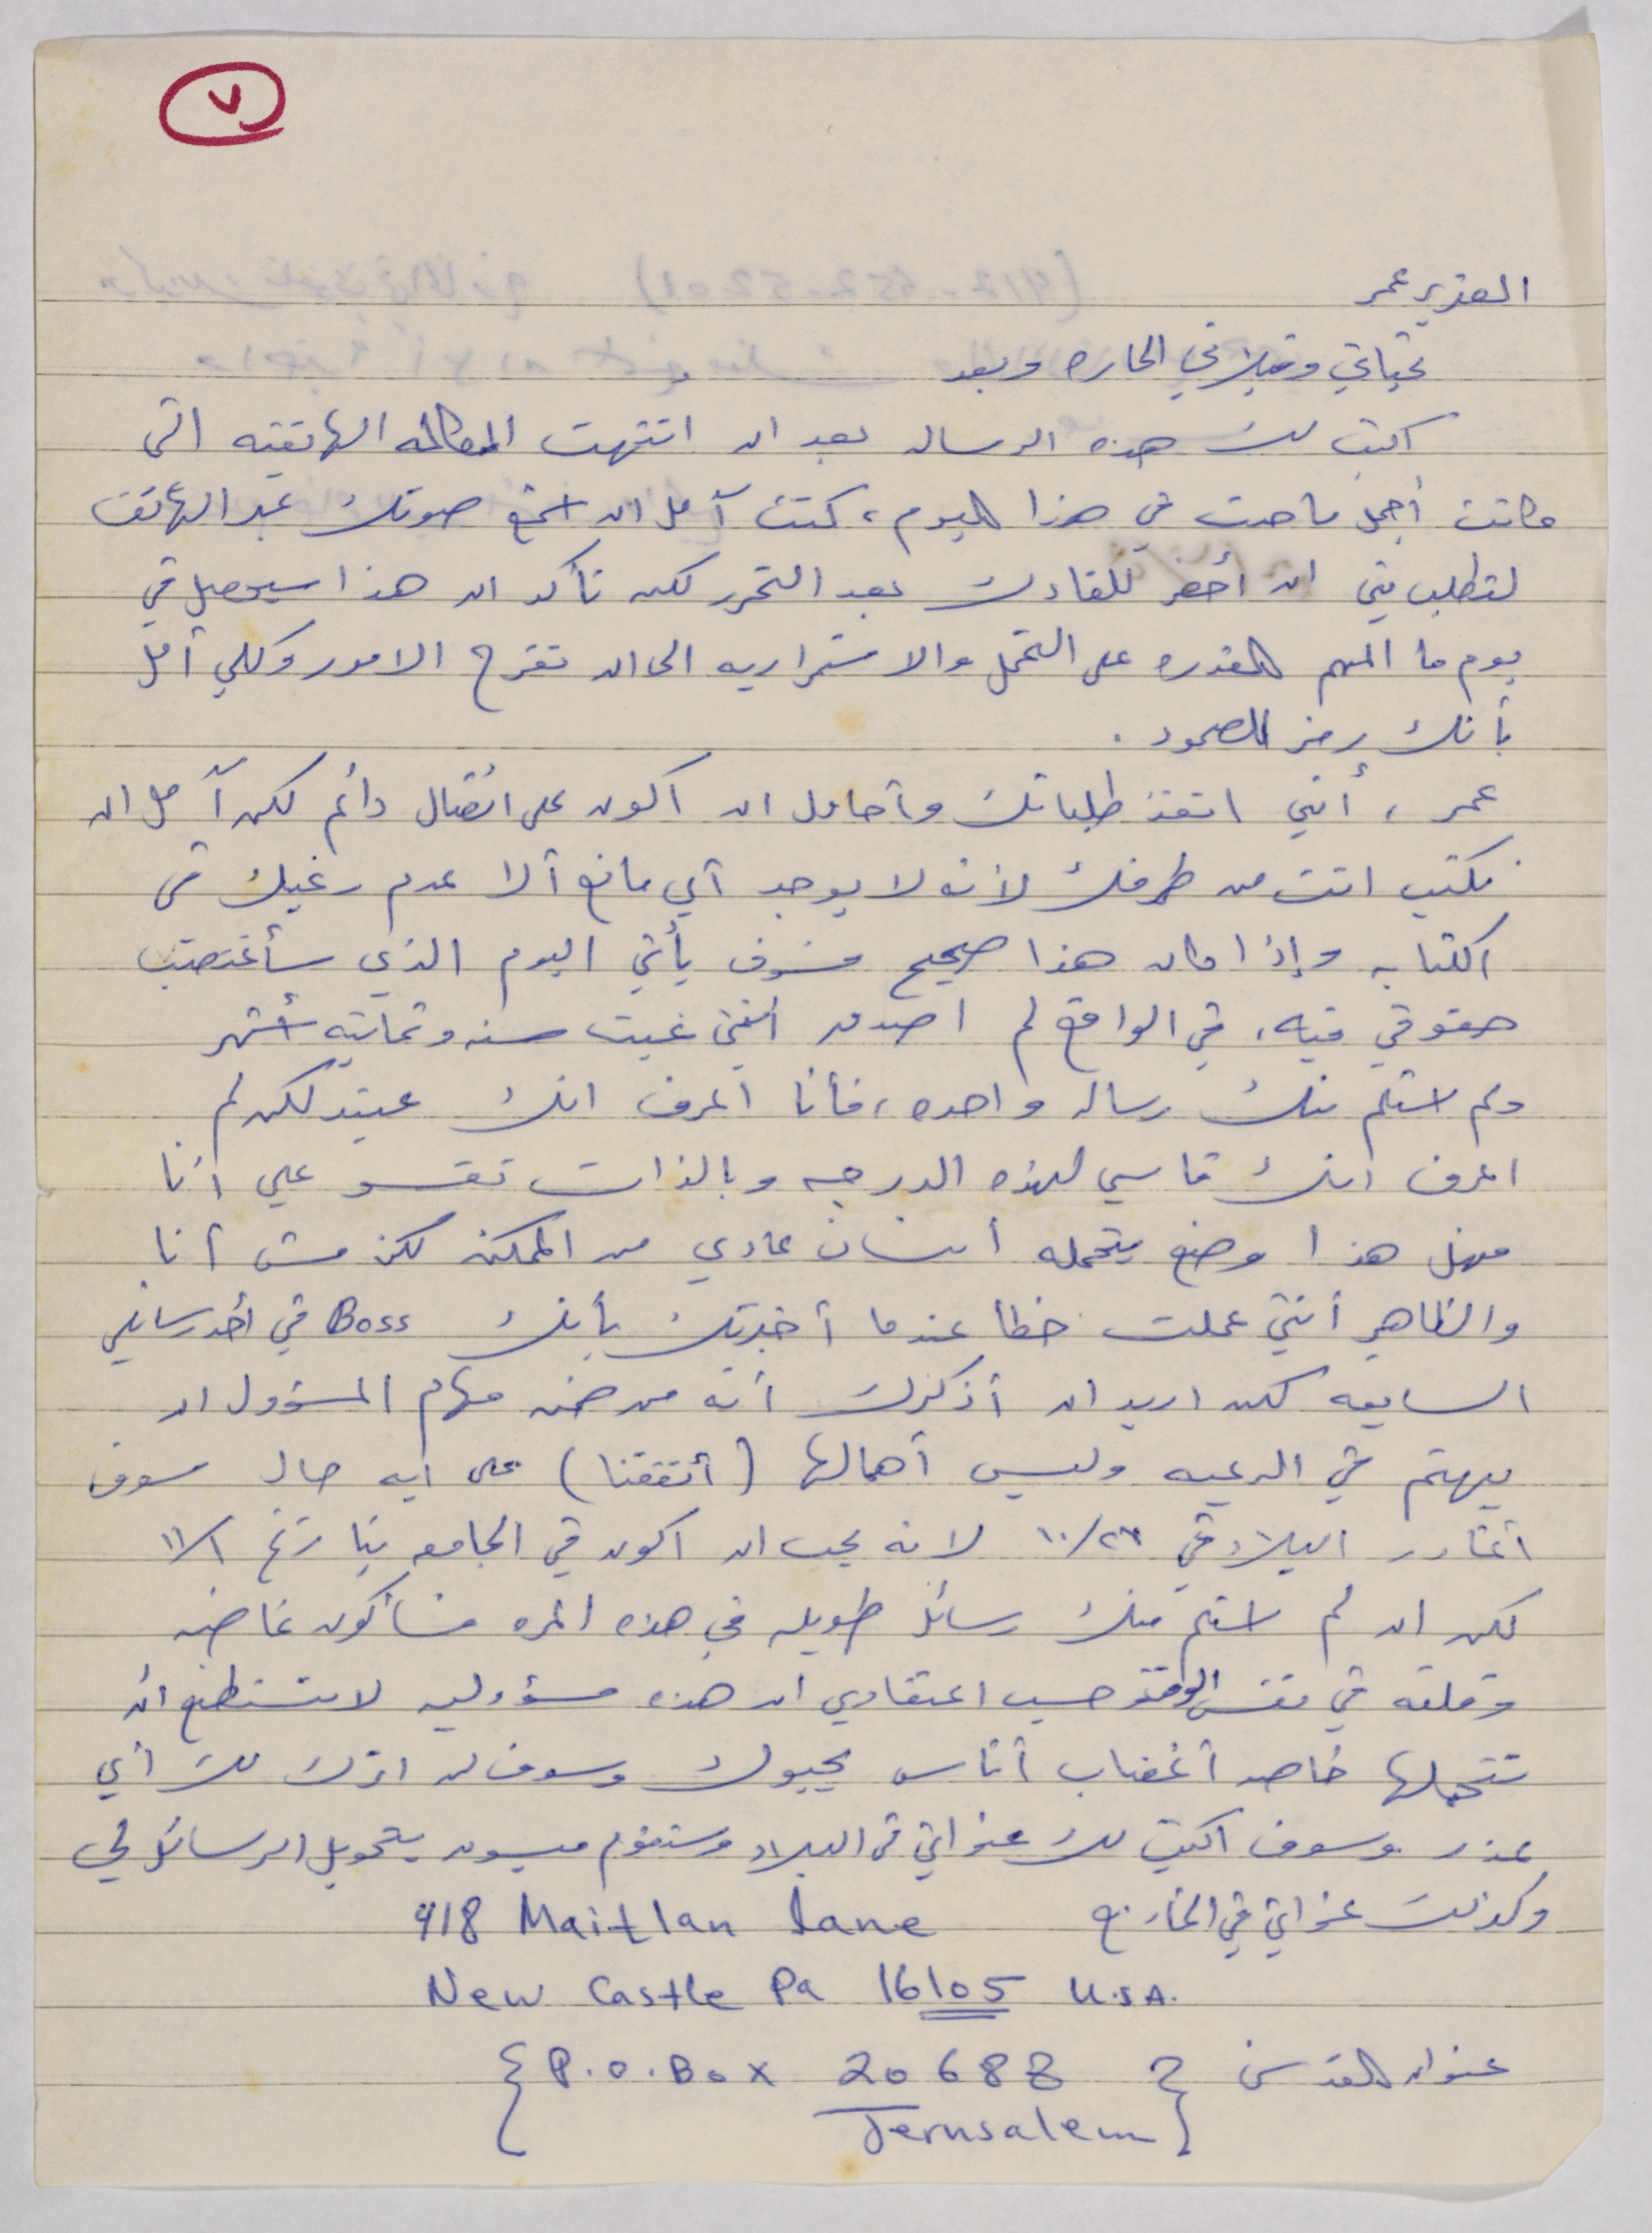 ٧
العزيز عمر
تحياتي وقبلاتي الحاره وبعد
اكتب لك هذه الرساله بعد ان انتهت المكالمه الهاتفيه التي
كانت أجمل ما حدث في هذا اليوم، كنت آمل ان اسمع صوتك عبر الهاتف
لتطلب مني ان أحضر للقاءك بعد التحرر لكن تأكد ان هذا سيحصل في
يوم ما المهم القدره على التحمل والاستمراريه الى ان تفرج الامور وكلي أمل
بأنك رمز للصمود .
عمر ، أنني انفذ طلباتك وأحاول ان اكون على اتصال دائم لكن آمل ان
تكتب انت من طرفك لأنه لا يوجد أي مانع ألا عدم رغبتك في
الكتابه وإذا كان هذا صحيح فسوف يأتي اليوم الذي سأغتصب
حقوقي فيه، في الواقع لم اصدق انني غبت سنه وثمانيه أشهر
ولم استلم منك رساله واحده، فأنا اعرف انك عنيد لكن لم
اعرف انك قاسي لهذه الدرجه وبالذات تقسو علي أنا
فهل هذا وضع يتحمله أنسان عادي من الممكن لكن مش أنا
والظاهر أنني عملت خطأ عندما أخبرتك بأنك Boss في أحد رسائلي
السابقه لكن اريد ان أذكرك أنه من ضمن مهام المسؤول ان
يهتم في الرعيه وليس أهمالها (أتفقنا) على ايه حال سوف
اغادر البلاد في ١٠/٢٣ لانه يجب ان اكون في الجامعه بتاريخ ١١/١
لكن ان لم استلم منك رسائل طويله في هذه المره فسأكون غاضبه
وقلقه في نفس الوقت وحسب اعتقادي ان هذه مسؤوليه لا تستطيع ان
تتحملها خاصه أغضاب أناس يحبوك وسوف لن اترك لك أي
عذر وسوف اكتب لك عنواني في البلاد وستقوم ميسون بتحويل الرسائل لي
وكذلك عنواني في الخارج 418 Maitlan Lane
New Castle Pa 16105 U.S.A.
عنوان القدس { P.O.Box 20688
Jerusalem }